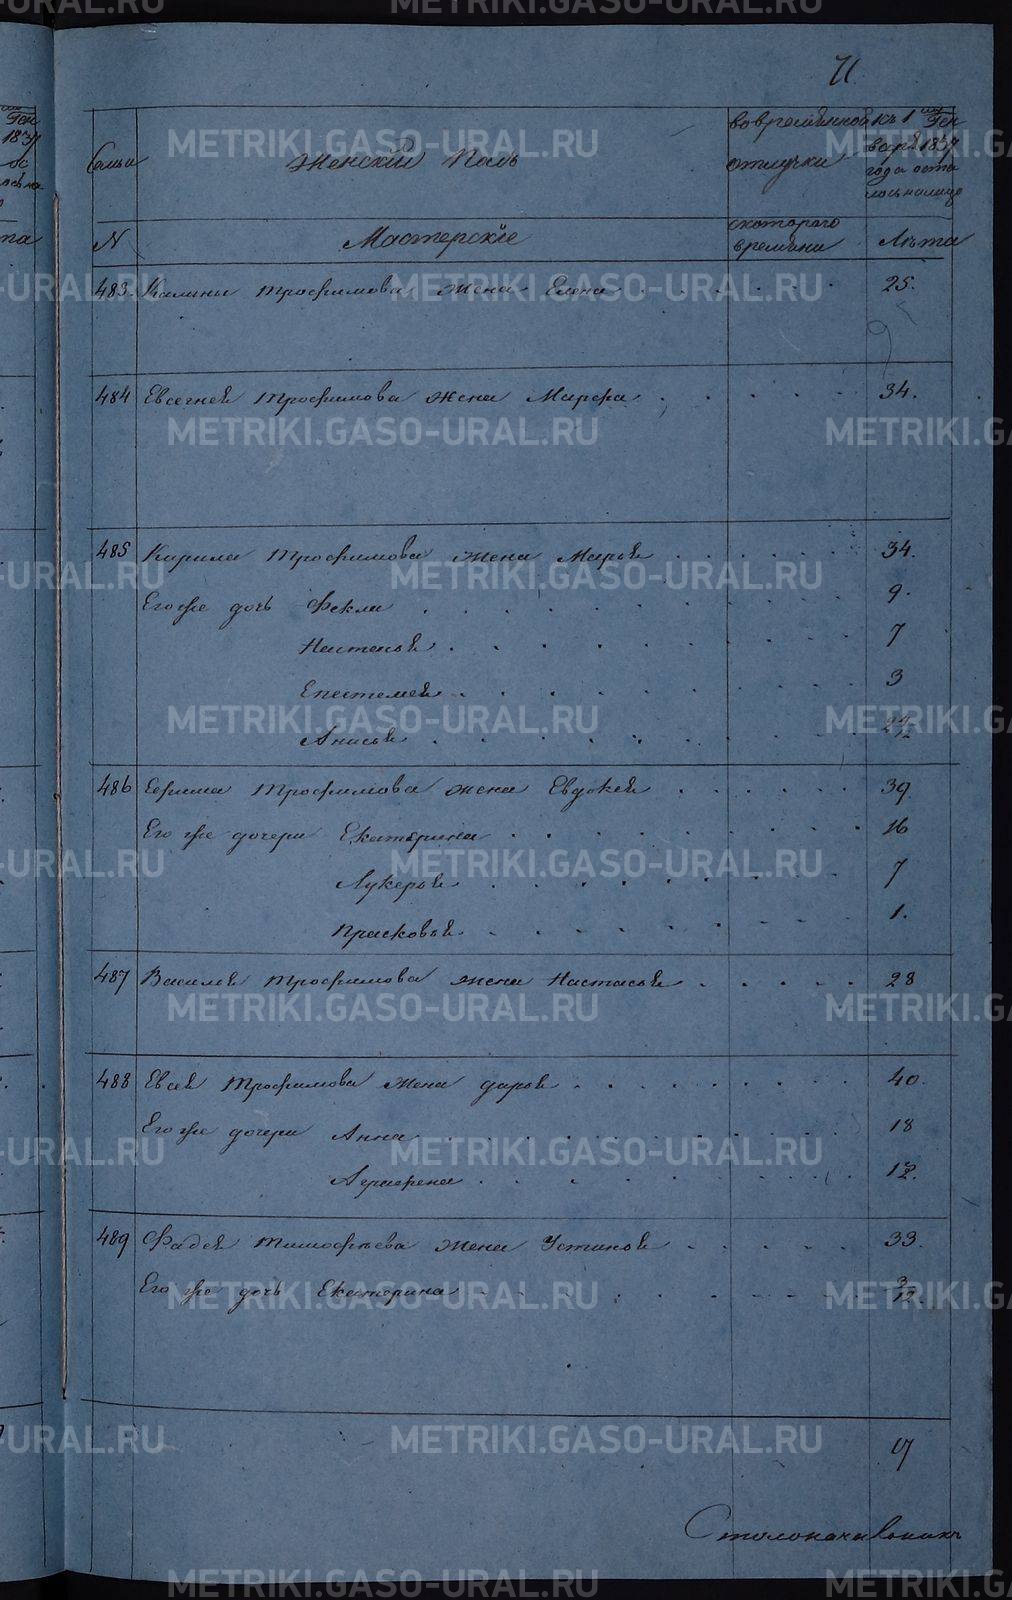 71
Семьи Женский Полъ вовремѣнной отлучки къ 1му Генваря 1837 года осталось налицо
N Мастерскіе скоторого времѣни Лѣта
483 Калины Трофимова Жена Елена 25.
484 Евсегнея Трофимова Жена Марфа 34.
485 Кирила Трофимова Жена Марья 34.
Его же дочь Фекла 9.
Настасья 7
Епестемея 3
Анисья
486 Ефима Трофимова жена Евдокея 39.
Его же дочери Екатерина 16
Лукерья 7
Прасковья 1.
487 Василья Трофимова Жена Настасья 28
488 Евсея Трофимова Жена дарья 40.
Его же дочери Анна 18
Аграфена 12.
489 Фадея Тимофѣева Жена Устинья 33.
Его же дочь Екатерина 3/12
17
Столоначальникъ
METRIKI.GASO-URAL.RU